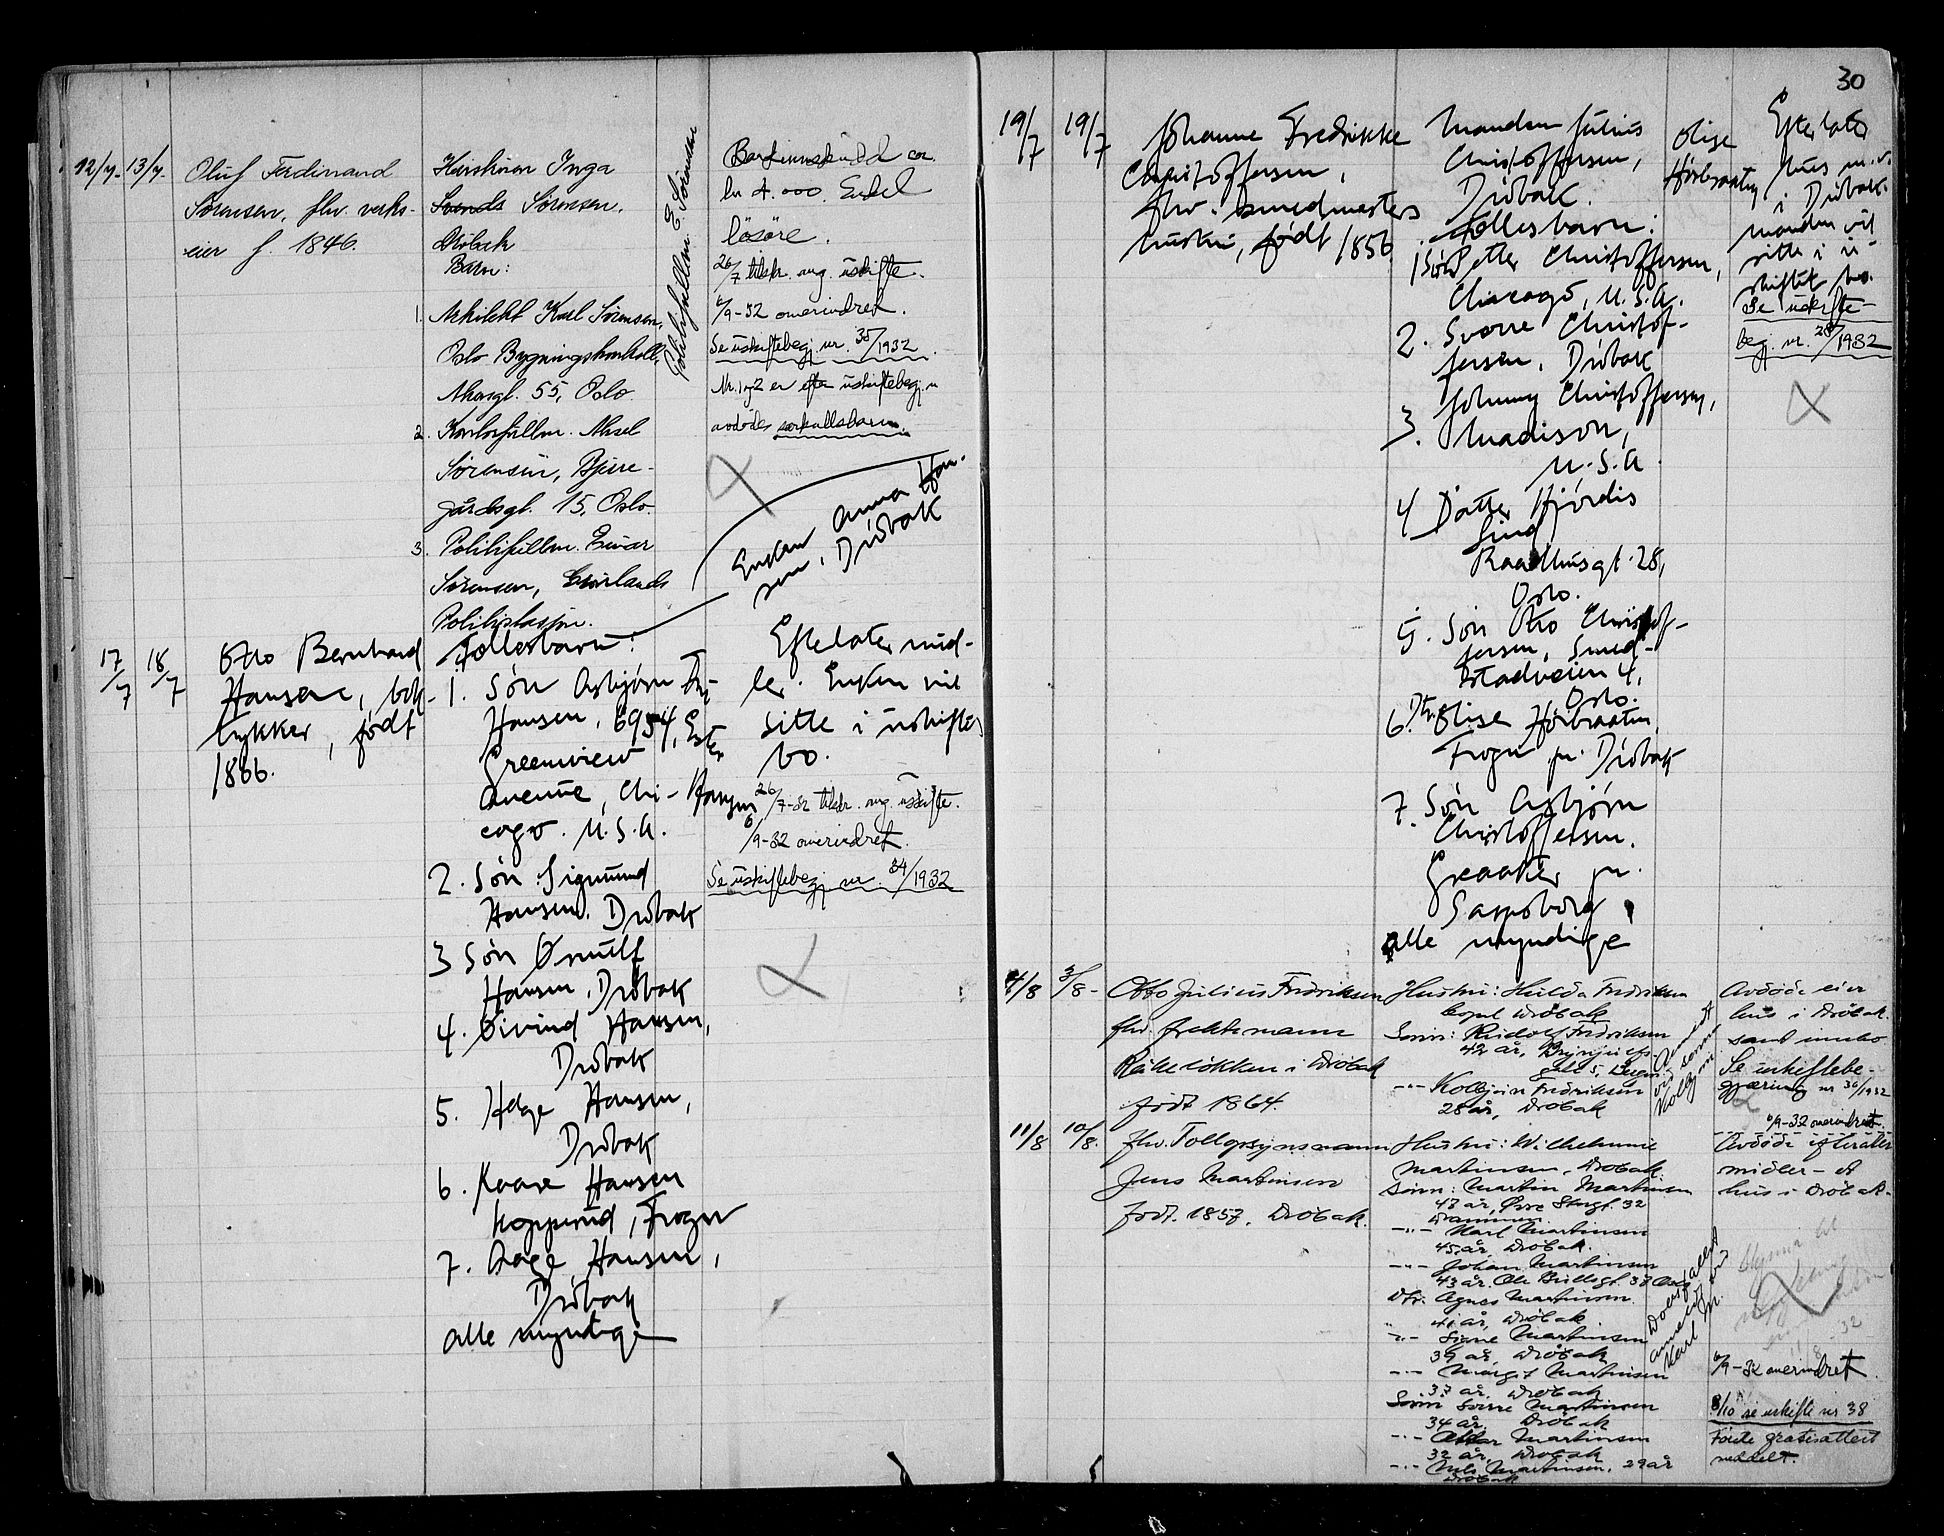 30
12/7. 13/7.
Oluf Ferdinand
Sörensen, fhv. verks-
eier f. 1846.
Inga
Sörensen.
Drøbak
Barn:
1. Arkitekt Karl Sörensen,
Oslo Bygningskontroll,
Akersgt. 55, Oslo.
2. Kontorfullm. Aksel
Sörensen, Bjerre-
gårdsgt. 15, Oslo.
3. Politifullm. Einar
Sörensen, Grönlands
Politistasjon.
Politifullm. E. Sörensen
ca.
kr 4.000. Endel
lösöre.
26/7 tilskr. ang. uskifte.
6/9-32 omerindret.
Se uskiftebegj. nr. 35/1932.
Nr. 1 og 2 er efter uskiftebegj.
avdödes særkullsbarn.
17/7 18/7
Otto Bernhard
Hansen, bok-
trykker, født
1866.
Enken Anna Han-
sen, Drøbak
Fellesbarn:
1. Søn Asbjørn
Hansen, 6954,
Greenview
Avenue, Chi-
cago. U.S.A.
2. Søn Sigmund
Hansen. Drøbak
3 Søn Ørnulf
Hansen, Drøbak
4. Øivind Hansen,
Drøbak
5. Helge Hansen,
Drøbak
6. Kaare Hansen
Kopperud, Frogn
7. Aage Hansen,
Drøbak
alle myndige
Hansen
Efterlater mid-
ler. Enken vil
sitte i uskiftet
bo.
26/7-32 tilskr. ang. uskifte.
6/9-32 omerindret.
Se uskiftebegj. nr. 34/1932
19/7 19/7
Johanne Fredrikke
Christoffersen,
fhv. smedmesters
hustru, født 1856
Manden Julius
Christoffersen,
Drøbak.
Fellesbarn:
1 Søn Petter Christoffersen,
Chicago, U.S.A.
2. Sverre Christof-
fersen, Drøbak
3. Johnny Christoffersen,
Madison,
U.S.A.
4 Datter Hjørdis
Lind
Raadhusgt. 28,
Oslo.
5. Søn Otto Christof-
fersen, Smed-
stadveien 4,
Oslo.
6. Dtr. Elise Hørbraaten
Frogn pr. Drøbak
7. Søn Asbjørn
Christoffersen.
Greaaker pr.
Sarpsborg
alle myndige
Elise
Hørbraaten
Efterlater
hus m.v.
i Drøbak.
Manden vil
sitte i u-
skiftet bo.
Se uskifte-
begj. nr. 28/1932
4/8 3/8-
Otto Julius Fredriksen
fhv. fraktemann
i Drøbak
født 1864.
Hustru: Hulda Fredriksen
Drøbak
Sønn: Rudolf Fredriksen
42 år,
gate 5, Bergen
-"- Kolbjørn Fredriksen
28 år, Drøbak
Anmeldt
ved sønn
Kolbjørn
Avdøde eier
hus i Drøbak.
samt innbo
Se uskiftebe-
gjæring nr 36/1932
6/9-32 omerindret.
11/8 10/8.
fhv. Tollopsynsmann
Jens Martinsen
født. 1857. Drøbak.
Hustru: Wilhelmine
Martinsen, Drøbak.
Sønn: Martin Martinsen
47 år, Øvre Storgt. 32
Drammen.
-"- Karl Martinsen
45 år, Drøbak.
-"- Johan Martinsen
43 år. Ole Bullsgt. 37
Dtr. Agnes Martinsen.
41 år, Drøbak.
-"- Signe Martinsen
39 år, Drøbak
-"- Margit Martinsen
37 år, Drøbak
Sønn Sverre Martinsen
34 år. Drøbak
-"- Martinsen
32 år, Drøbak
-"- Nils Martinsen, 29 år
Drøbak
Dødsfallet
anmeldt av
Karl M.
Avdøde efterlater
midler - et
hus i Drøbak.
6/9-32 omerindret.
8/10 se uskifte nr 38
meddelt.